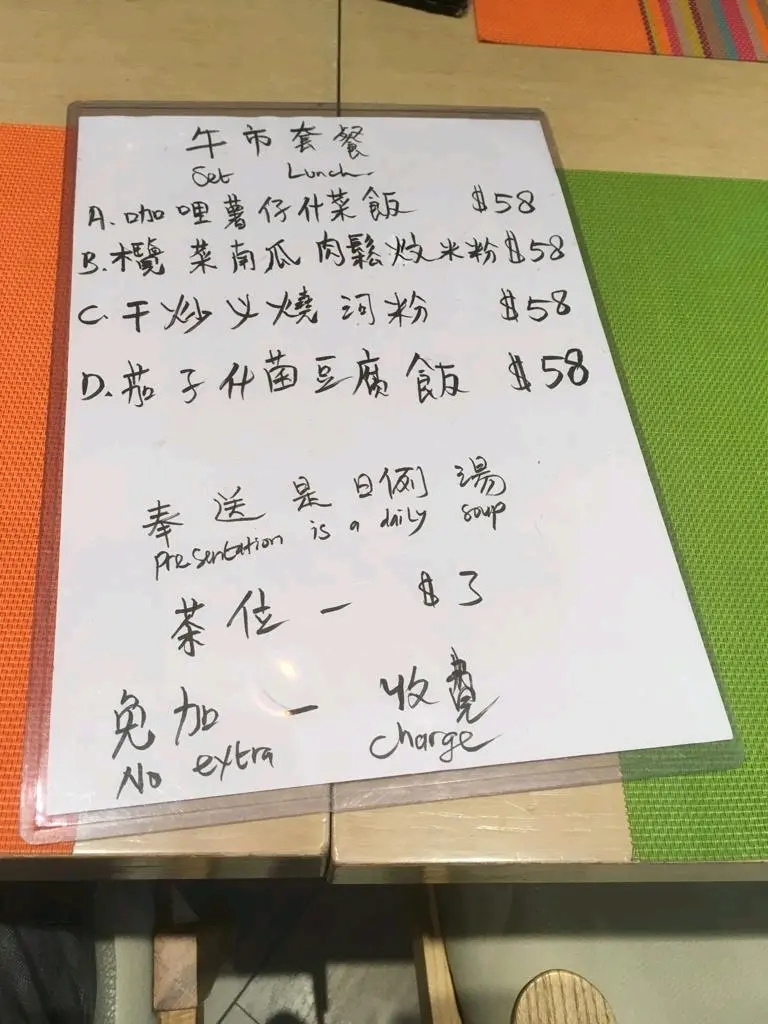 午市套餐
Set Lunch
A.咖哩薯仔什菜飯 $58
B.欖菜南瓜肉鬆炒米粉 $58
C.干炒乂燒河粉 $58
D.茄子什菌豆腐飯 $58
奉送是日例湯
presentation is a daily soup
茶位一 $3
免加一收費
No extra charge